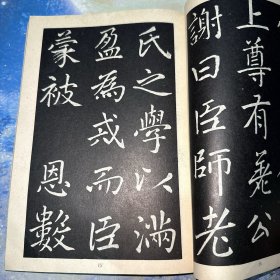 上尊有差公
謝曰臣師老
氏之學以滿
盈為戒而臣
蒙被　恩數